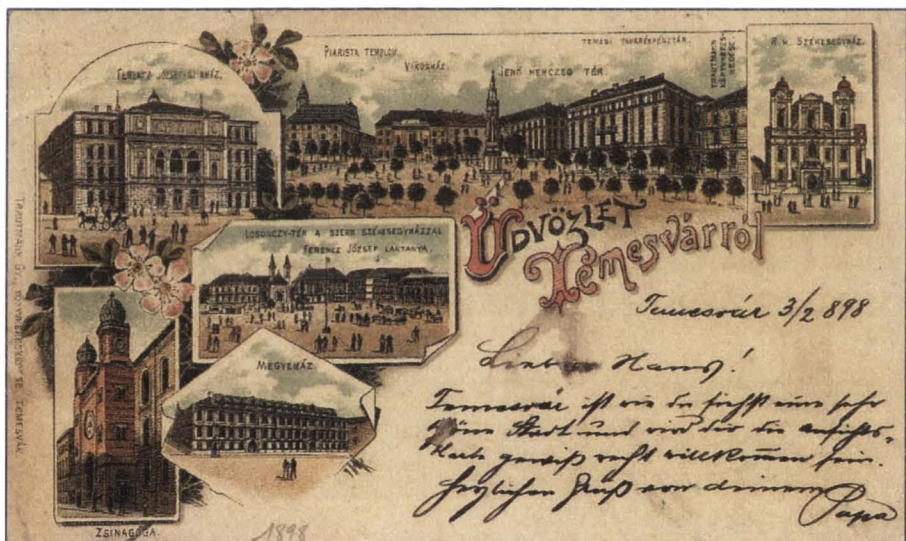 FERENCZ JÓZSEF SZINHÁZ.
PIARISTA TEMPLOM.
VÁROSHÁZ.
JENŐ HERCZEG TÉR.
TEMESI TAKARÉKPÉNZTÁR.
R. K. SZÉKESEGYHÁZ.
LOSONCZY-TÉR A SZERB SZÉKESEGYHÁZZAL
FERENCZ JÓZSEF LAKTANYA.
ÜDVÖZLET
Temesvárról
MEGYEHÁZ.
ZSINAGÓGA.
TEMESVÁR.
Temesvár 3/2 898
Lieber Hans!
Temesvár ist wie du siehst eine sehr
schöne Stadt und wird dir die Ansichts-
Karte gewiß recht willkommen sein.
Herzlichen Gruß von deinem
Papa
1898